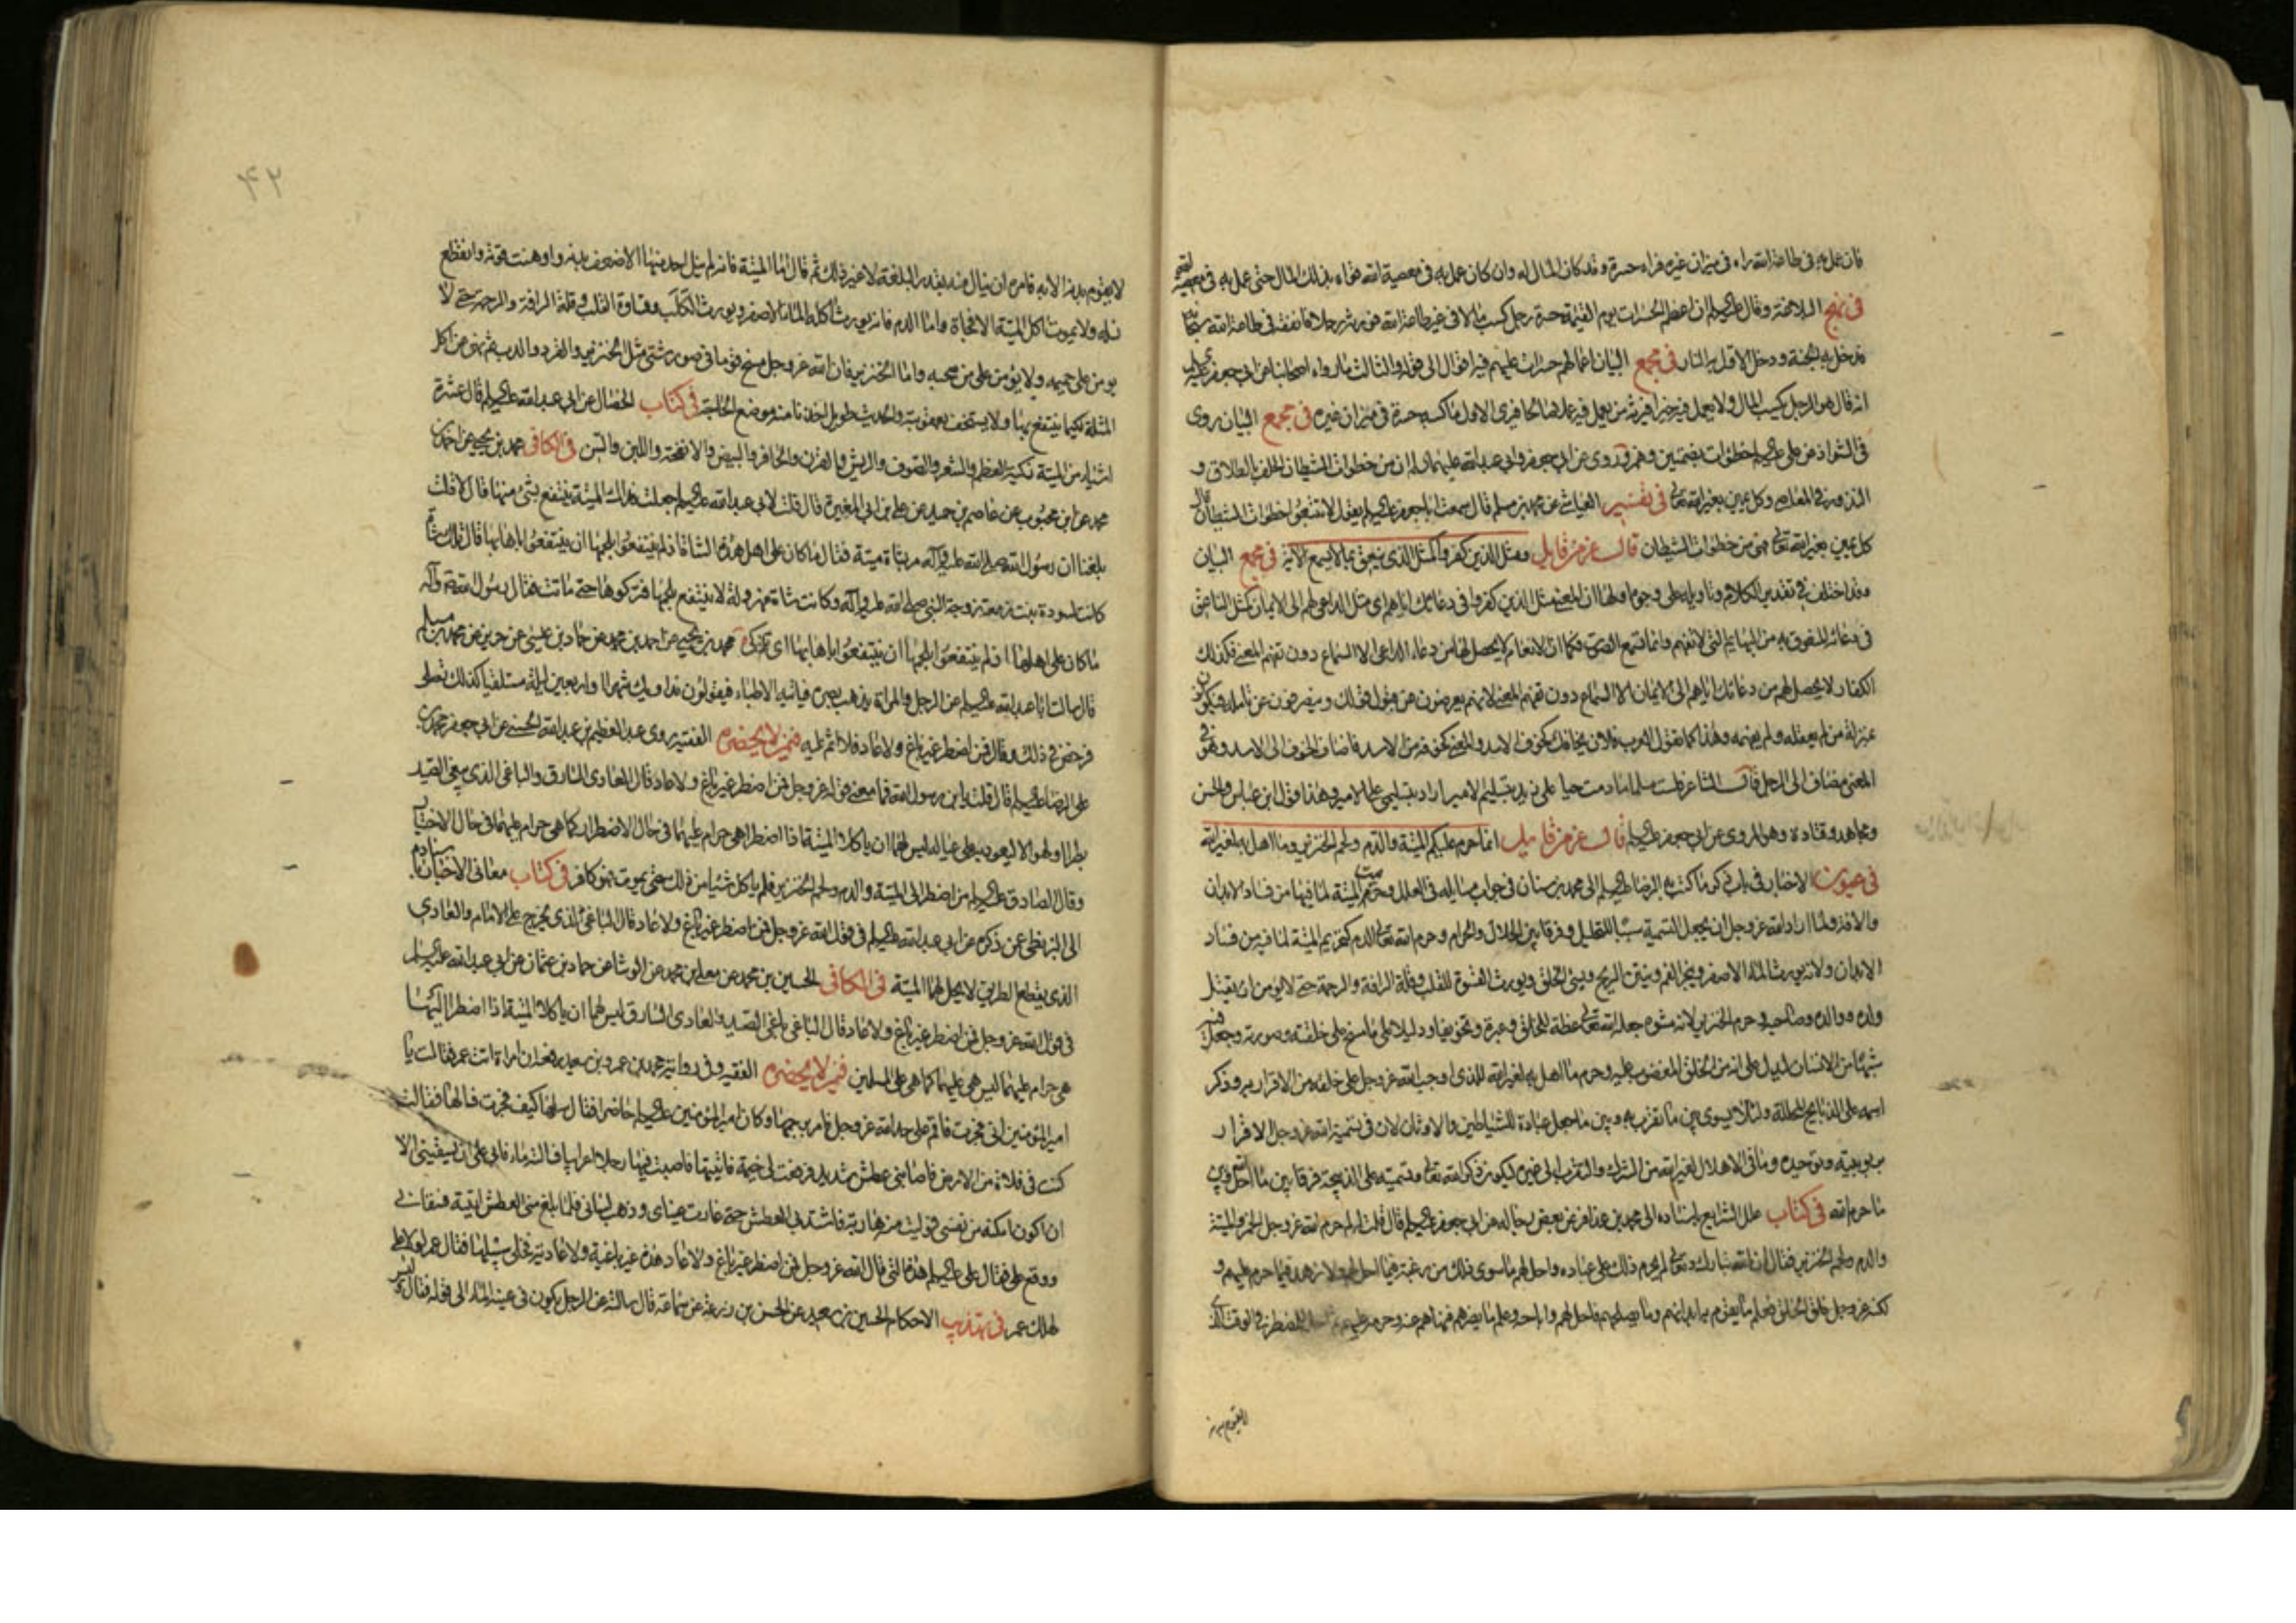 فان عمل به فى طاعة الله راه فى ميزان غيره فراه حسرة وقد كان المال له وان كان عمل به فى معصية الله قواه بذلك المال حتى عمل به فى معصية الله
فى نهج البلاغة وقال عليه السلم ان اعظم الحسرات يوم القيمة حسرة رجل كسب مالا فى غير طاعة الله فورثه رجلا فانفقه فى طاعة الله سبحانه
فدخل به الجنة ودخل الاول به النار فى مجمع البيان اعمالهم حسرات عليهم فيه اقوال الى قوله والثالث ما رواه اصحابنا عن ابى جعفر عليه السلم
انه قال هو الرجل يكسب المال ولا يعمل فيه خيرا فيرثه من يعمل فيه عملا صالحا فيرى الاول ما كسبه حسرة فى ميزان غيره فى مجمع البيان روى
فى الشواذ عن على عليه السلم خطؤات بضمتين وهمز وروى عن ابى جعفر وابى عبد الله عليهما السلم ان من خطوات الشيطان الحلف بالطلاق و
النذور فى المعاصى وكل يمين بغير الله تعالى فى تفسير العياشى عن محمد بن مسلم قال سمعت ابا جعفر عليه السلم يقول لا تتبعوا خطوات الشيطان قال
كل يمين بغير الله تعالى فهى من خطوات الشيطان قال عز من قايل ومثل الذين كفروا كمثل الذى ينعق بما لا يسمع الاية فى مجمع البيان
وقد اختلف فى تقدير الكلام وتاويله على وجوه اولها ان المعنى مثل الذين كفروا فى دعائك اياهم اى مثل الداعى لهم الى الايمان كمثل الناعق
فى دعائه المنعوق به من البهايم التى لا تفهم وانما تسمع الصوت فكما ان الانعام لا يحصل لها من دعاء الداعى الا السماع دون تفهم المعنى فكذلك
الكفار لا يحصل لهم من دعائك اياهم الى الايمان الا السماع دون تفهم المعنى لانهم يعرضون عن قبول قولك وينصرفون عن تامله فيكونون
بمنزلة من لم يعقله ولم يفهمه وهذا كما تقول العرب فلان يخافك كخوف الاسد والمعنى كخوفه من الاسد فاضاف الخوف الى الاسد وهو فى
المعنى مضاف الى الرجل قال الشاعر فلست مسلما ما دمت حيا على زيد بتسليم الامير اراد بتسليمى على الامير وهذا قول ابن عباس والحسن
ومجاهد وقتاده وهو المروى عن ابى جعفر عليه السلم قال عز من قايل انما حرم عليكم الميتة والدم ولحم الخنزير وما اهل به لغير الله
فى عيون الاخبار فى باب ذكر ما كتب به الرضا عليه السلم الى محمد بن سنان فى جواب مسايله فى العلل وحرمت الميتة لما فيها من فساد الابدان
والافة ولما اراد الله عز وجل ان يجعل التسمية سببا للتحليل وفرقا بين الحلال والحرام وحرم الله تعالى الدم كتحريم الميتة لما فيه من فساد
الابدان ولانه يورث الماء الاصفر ويبخر الفم وينتن الريح ويسىء الخلق ويورث القسوة للقلب وقلة الرافة والرحمة حتى لا يؤمن ان يقتل
ولده ووالده وصاحبه وحرم الخنزير لانه مشوه جعله الله تعالى عظة للخلق وعبرة وتخويفا ودليلا على ما مسخ على خلقته وصورته وجعل فيه
شبها من الانسان ليدل على انه من الخلق المغضوب عليه وحرم ما اهل به لغير الله للذى اوجب الله عز وجل على خلقه من الاقرار به وذكر
اسمه على الذبايح المحللة ولئلا يسوى بين ما تقرب به وبين ما جعل عبادة للشياطين والاوثان لان فى تسمية الله عز وجل الاقرار
بربوبيته وتوحيده وما فى الاهلال لغير الله من الشرك والتقرب الى غيره ليكون ذكر الله تعالى وتسميته على الذبيحة فرقا بين ما احل الله وبين
ما حرم الله فى كتاب علل الشرايع باسناده الى محمد بن عذافر عن بعض رجاله عن ابى جعفر عليه السلم قال قلت له لم حرم الله عز وجل الخمر والميتة
والدم ولحم الخنزير فقال ان الله تبارك وتعالى لم يحرم ذلك على عباده واحل لهم ما سوى ذلك من رغبة فيما احل لهم ولا زهد فيما حرم عليهم و
لكنه عز وجل خلق الخلق فعلم ما يقوم به ابدانهم وما يصلحهم فاحل لهم واباحه وعلم ما يضرهم فنهاهم عنه وحرمه عليهم ثم احله للمضطر فى الوقت الذى
لا يقوم بدنه
۴۲
لا يقوم بدنه الا به فامره ان ينال منه بقدر البلغة لا غير ذلك ثم قال اما الميتة فانه لم ينل احد منها الا ضعف بدنه واوهنت قوته وانقطع
نسله ولا يموت اكل الميتة الا فجاة واما الدم فانه يورث اكله الماء الاصفر ويورث الكلب وقساوة القلب وقلة الرافة والرحمة حتى لا
يومن على حميمه ولا يؤمن على من صحبه واما الخنزير فان الله عز وجل مسخ قوما فى صور شتى مثل الخنزير والقرد والدب ثم نهى عن اكل
المثلة لكيما ينتفع بها ولا يستخف بعقوبته والحديث طويل اخذنا منه موضع الحاجة فى كتاب الخصال عن ابى عبد الله عليه السلم قال عشرة
اشياء من الميتة ذكية العظم والشعر والصوف والريش والقرن والحافر والبيض والانفحة واللبن والسن فى الكافى محمد بن يحيى عن احمد بن
محمد عن ابن محبوب عن عاصم بن حميد عن على بن ابى المغيرة قال قلت لابى عبد الله عليه السلم جعلت فداك الميتة ينتفع بشىء منها قال لا قلت
بلغنا ان رسول الله صلى الله عليه وآله مر بشاة ميتة فقال ما كان على اهل هذه الشاة اذ لم ينتفعوا بلحمها ان ينتفعوا باهابها قال تلك شاة
كانت لسودة بنت زمعة زوجة النبى صلى الله عليه وآله وكانت شاة مهزولة لا ينتفع بلحمها فتركوها حتى ماتت فقال رسول الله ص وآله
ما كان على اهلها اذ لم ينتفعوا بلحمها ان ينتفعوا باهابها اى تذكى محمد بن يحيى عن احمد بن محمد عن حماد بن عيسى عن حريز عن محمد بن مسلم
قال سالت ابا عبد الله عليه السلم عن الرجل والمراة يذهب بصره فياتيه الاطباء فيقولون نداويك شهرا او اربعين ليلة مستلقيا كذلك تصلى
فرخص فى ذلك وقال فمن اضطر غير باغ ولا عاد فلا اثم عليه فى من لا يحضره الفقيه روى عبد العظيم بن عبد الله الحسنى عن ابى جعفر محمد بن
على الرضا عليه السلم قال قلت يا بن رسول الله فما معنى قوله عز وجل فمن اضطر غير باغ ولا عاد قال العادى السارق والباغى الذى يبغى الصيد
بطرا او لهوا لا ليعود به على عياله ليس لهما ان ياكلا الميتة اذا اضطرا هى حرام عليهما فى حال الاضطرار كما هى حرام عليهما فى حال الاختيار
وقال الصادق عليه السلم من اضطر الى الميتة والدم ولحم الخنزير فلم ياكل شيئا من ذلك حتى يموت فهو كافر فى كتاب معانى الاخبار باسناده
الى البزنطى عمن ذكره عن ابى عبد الله عليه السلم فى قول الله عز وجل فمن اضطر غير باغ ولا عاد قال الباغى الذى يخرج على الامام والعادى
الذى يقطع الطريق لا يحل لهما الميتة فى الكافى الحسين بن محمد عن معلى بن محمد عن الوشا عن حماد بن عثمان عن ابى عبد الله عليه السلم
فى قول الله عز وجل فمن اضطر غير باغ ولا عاد قال الباغى باغى الصيد والعادى السارق ليس لهما ان ياكلا الميتة اذا اضطرا اليها
هى حرام عليهما ليس هى عليهما كما هى على المسلمين فى من لا يحضره الفقيه وفى رواية محمد بن عمرو بن سعيد رفعه ان امراة اتت عمر فقالت يا
امير المؤمنين انى فجرت فاقم على حد الله عز وجل فامر برجمها وكان امير المؤمنين عليه السلم حاضرا فقال سلها كيف فجرت فسالها فقالت
كنت فى فلاة من الارض فاصابنى عطش شديد فرفعت لى خيمة فاتيتها فاصبت فيها رجلا اعرابيا فسالته ماء فابى على ان يسقينى الا
ان اكون امكنه من نفسى فوليت منه هاربة فاشتد بى العطش حتى غارت عيناى وذهب لسانى فلما بلغ منى العطش اتيته فسقانى
ووقع على فقال على عليه السلم هذه التى قال الله عز وجل فمن اضطر غير باغ ولا عاد هذه غير باغية ولا عادية فخلى سبيلها فقال عمر لولا على
لهلك عمر فى تهذيب الاحكام الحسين بن سعيد عن الحسن بن زرعة عن سماعة قال سالته عن الرجل يكون فى عينيه الماء الى قوله فقال وليس